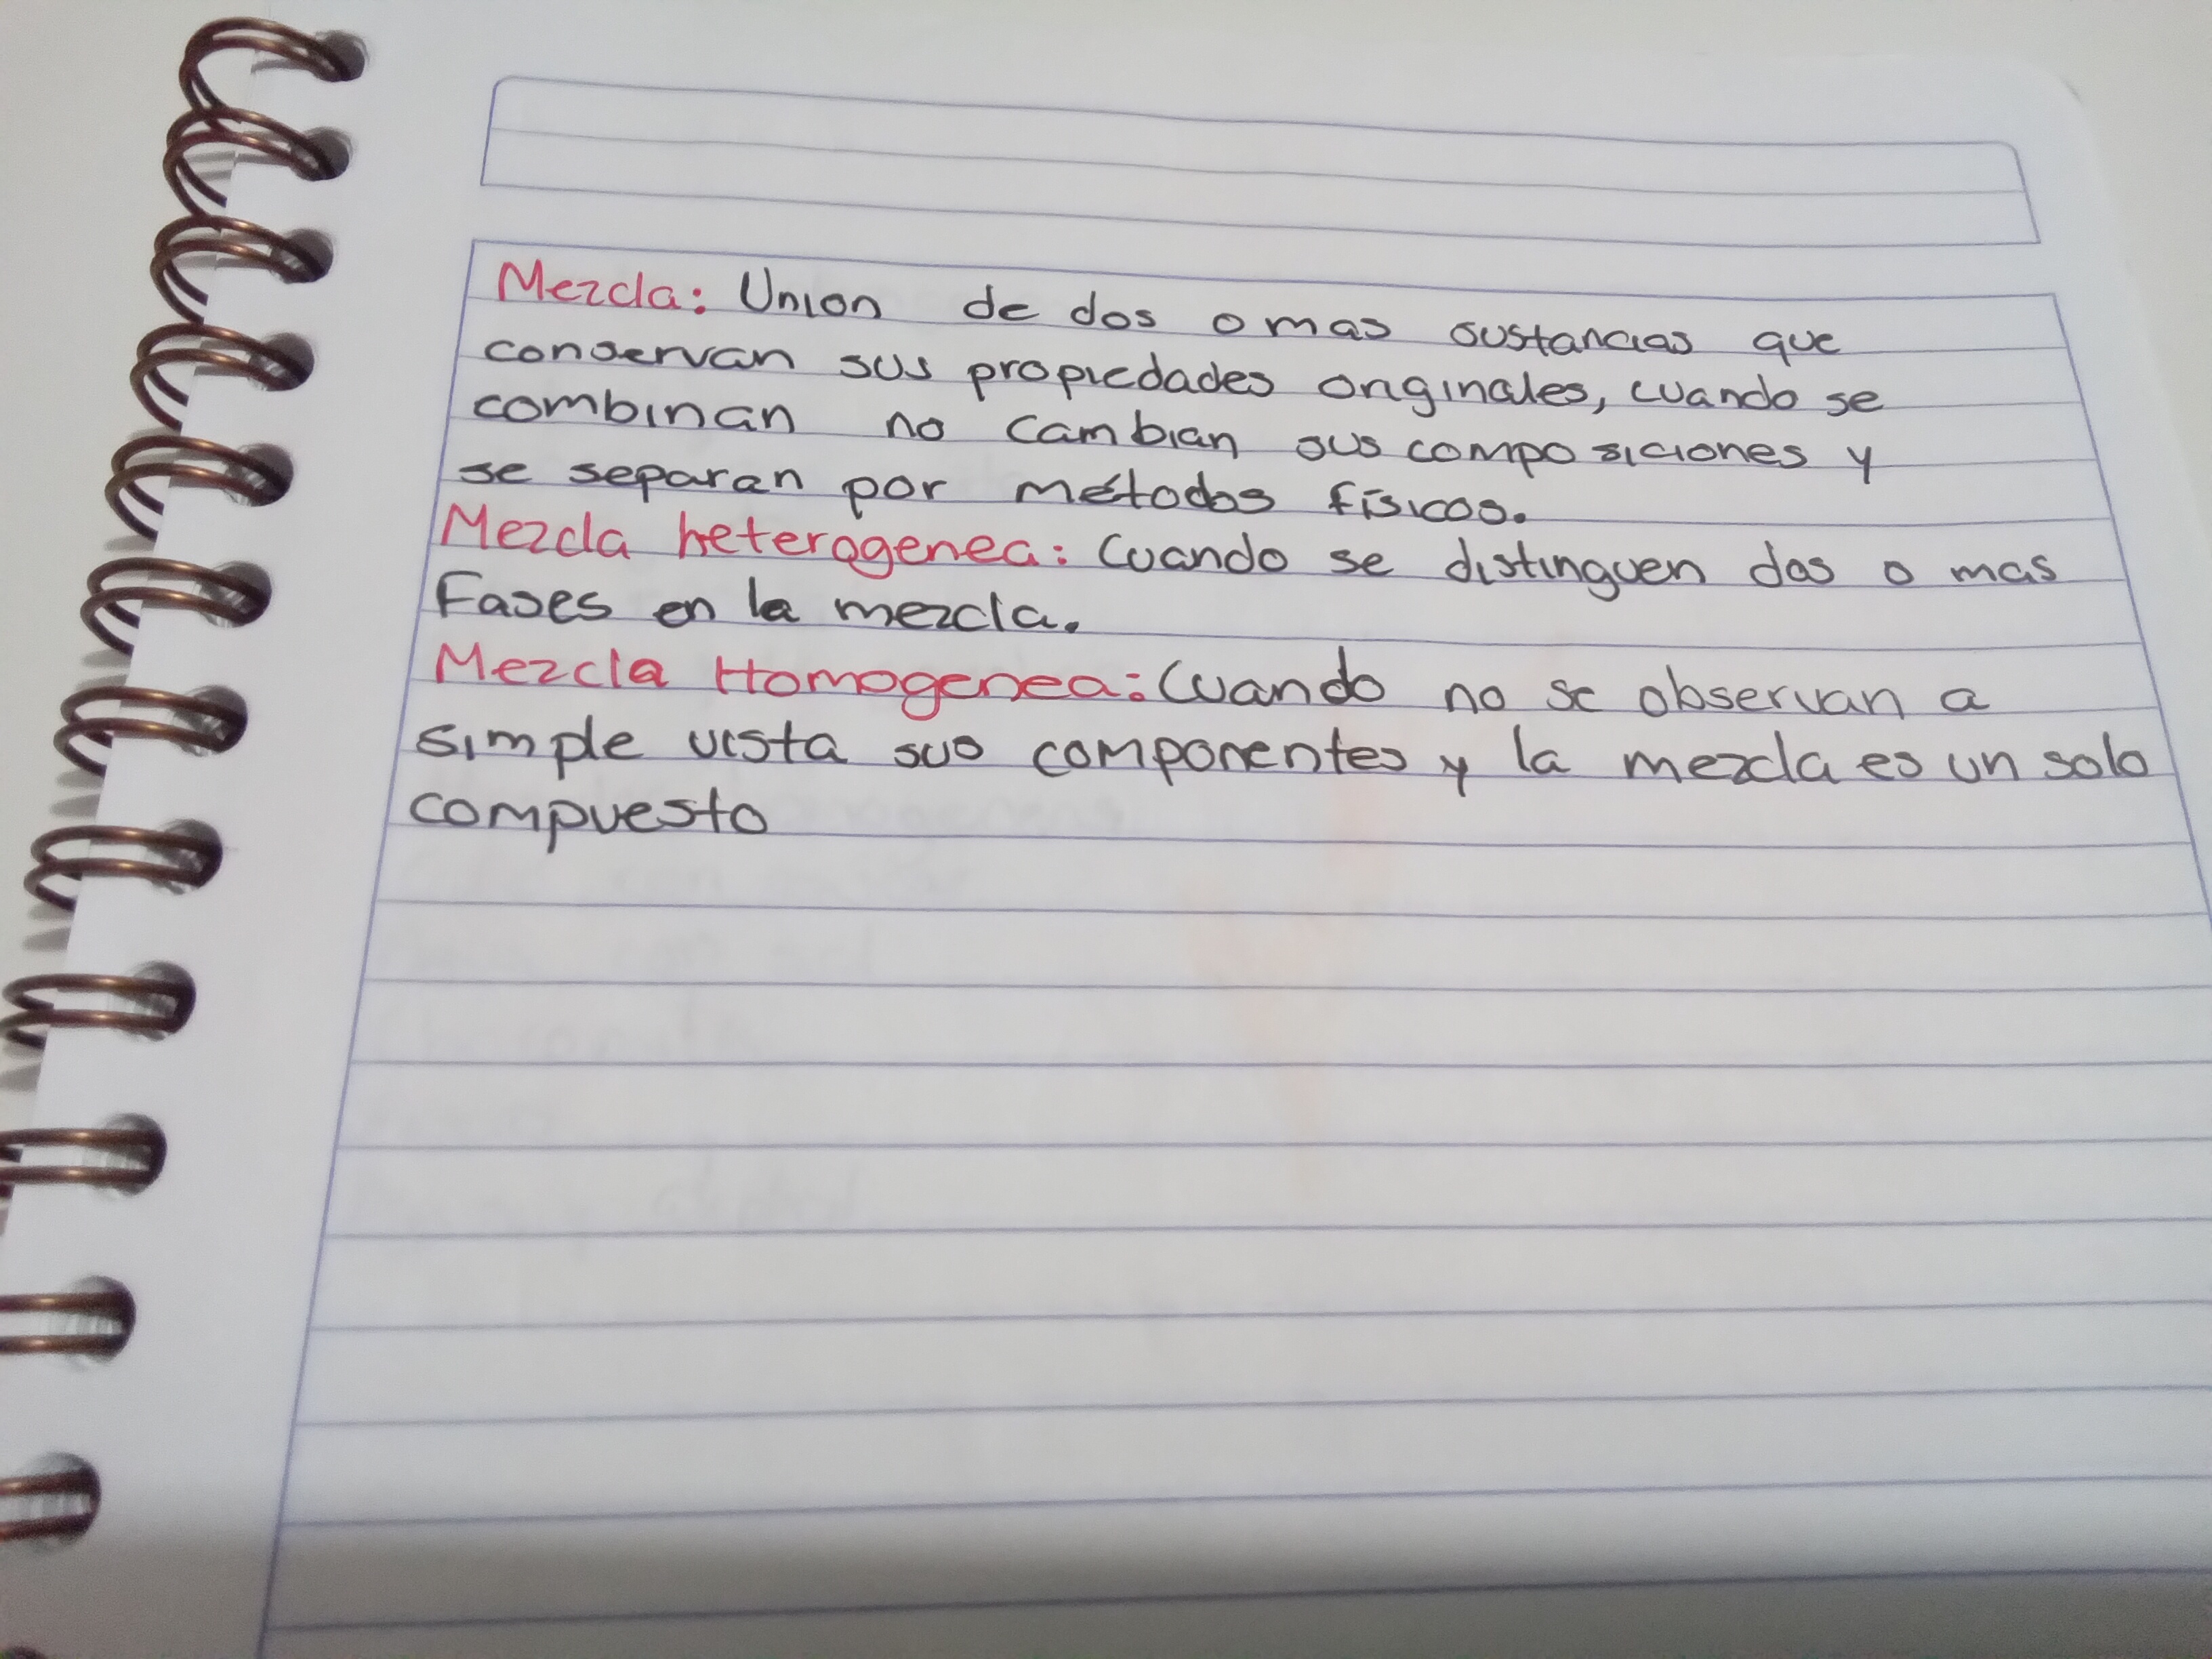 Mezcla: Union de dos o mas sustancias que
conservan sus propiedades originales, cuando se
combinan no cambian sus composiciones y
se separan por métodos físicos.
Mezcla heterogenea: Cuando se distinguen dos o mas
Fases en la mezcla.
Mezcla Homogenea: Cuando no se observan a
simple vista sus componentes y la mezcla es un solo
compuesto